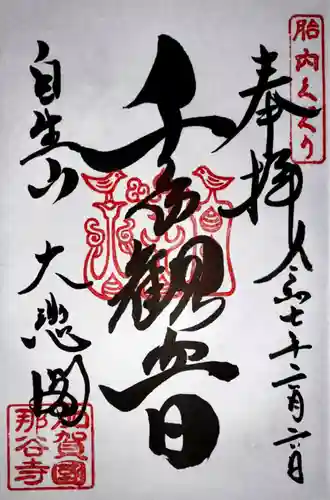 胎内くぐり
奉拝
令和七年十二月六日
千手観音
自生山
大悲閣
加賀國
那谷寺